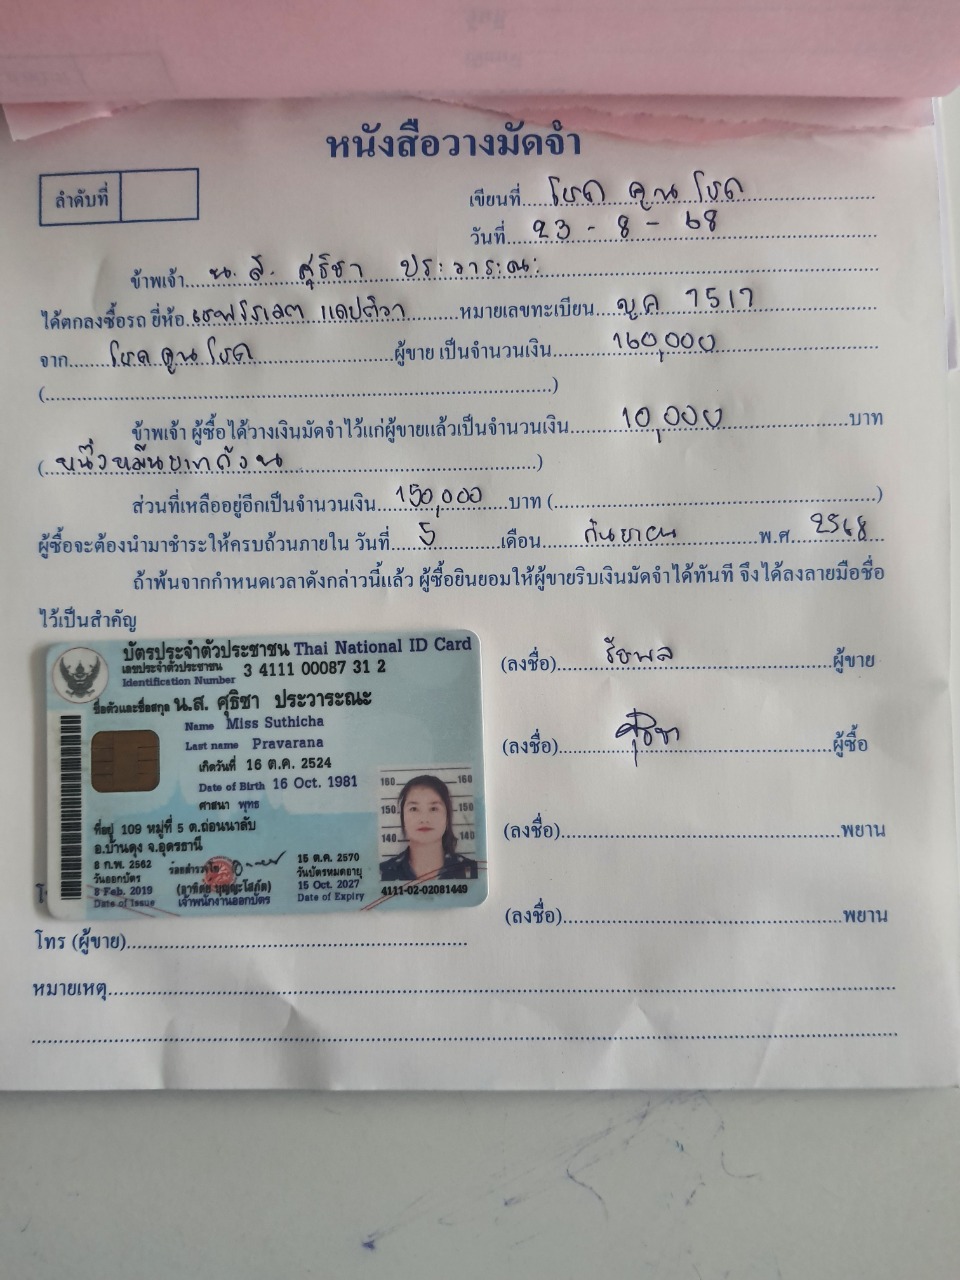 หนังสือวางมัดจำ
ลำดับที่
เขียนที่ โชค คูน โชค
วันที่ 23 - 8 - 68
ข้าพเจ้า น.ส. ศุธิชา ประวาระณะ
ได้ตกลงซื้อรถ ยี่ห้อ เชฟโรเลต แคปติวา หมายเลขทะเบียน 7517
จาก โชค คูน โชค ผู้ขาย เป็นจำนวนเงิน 160,000
( )
ข้าพเจ้า ผู้ซื้อได้วางเงินมัดจำไว้แก่ผู้ขายแล้วเป็นจำนวนเงิน 10,000 บาท
( หนึ่งหมื่นบาทถ้วน )
ส่วนที่เหลืออยู่อีกเป็นจำนวนเงิน 150,000 บาท ( )
ผู้ซื้อจะต้องนำมาชำระให้ครบถ้วนภายใน วันที่ 5 เดือน กันยายน พ.ศ. 2568
ถ้าพ้นจากกำหนดเวลาดังกล่าวนี้แล้ว ผู้ซื้อยินยอมให้ผู้ขายริบเงินมัดจำได้ทันที จึงได้ลงลายมือชื่อ
ไว้เป็นสำคัญ
บัตรประจำตัวประชาชน Thai National ID Card
เลขประจำตัวประชาชน 3 4111 00087 31 2
Identification Number
ชื่อตัวและชื่อสกุล น.ส. ศุธิชา ประวาระณะ
Name Miss Suthicha
Last name Pravarana
เกิดวันที่ 16 ต.ค. 2524
Date of Birth 16 Oct. 1981
ศาสนา พุทธ
ที่อยู่ 109 หมู่ที่ 5 ต.ถ่อนนาลับ
อ.บ้านดุง จ.อุดรธานี
8 ก.พ. 2562
วันออกบัตร
8 Feb. 2019
Date of Issue
เจ้าพนักงานออกบัตร
15 ต.ค. 2570
วันบัตรหมดอายุ
15 Oct. 2027
Date of Expiry
160 160
150 150
140 140
4111-02-02081449
(ลงชื่อ) รัชพล ผู้ขาย
(ลงชื่อ) ศุธิชา ผู้ซื้อ
(ลงชื่อ) พยาน
(ลงชื่อ) พยาน
โทร (ผู้ขาย)
หมายเหตุ